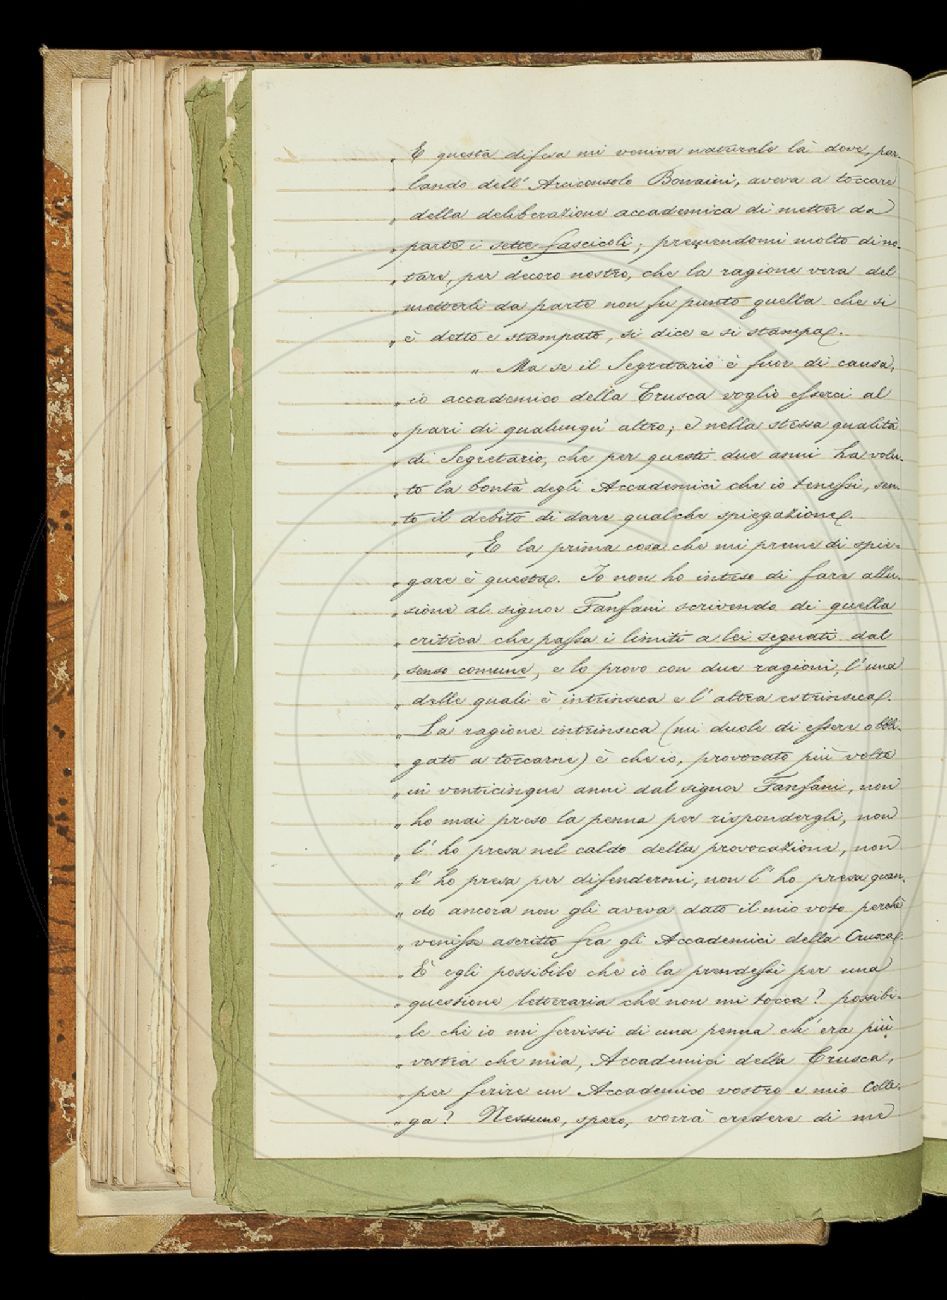 „ E questa difesa mi veniva naturale là dove, par-
„ lando dell' Arciconsolo Bonaini, aveva a toccare
„ della deliberazione accademica di metter da
„ parte i sette fascicoli; premendomi molto di no-
„ tare, per decoro nostro, che la ragione vera del
„ metterli da parte non fu punto quella che si
„ è detto e stampato, si dice e si stampa.
„ Ma se il Segretario è fuor di causa,
„ io accademico della Crusca voglio esserci al
„ pari di qualunqu' altro; e nella stessa qualità
„ di Segretario, che per questi due anni ha volu-
„ to la bontà degli Accademici che io tenessi, sen-
„ to il debito di dare qualche spiegazione.
„ E la prima cosa che mi preme di spie-
„ gare è questa. Io non ho inteso di fare allu-
„ sione al signor Fanfani scrivendo di quella
„ critica che passa i limiti a lei segnati dal
„ senso comune, e lo provo con due ragioni, l' una
„ delle quali è intrinseca e l' altra estrinseca.
„ La ragione intrinseca (mi duole di essere obbli-
„ gato a toccarne) è che io, provocato più volte
„ in venticinque anni dal signor Fanfani, non
„ ho mai preso la penna per rispondergli, non
„ l' ho presa nel caldo della provocazione, non
„ l' ho presa per difendermi, non l' ho presa quan-
„ do ancora non gli aveva dato il mio voto perchè
„ venisse ascritto fra gli Accademici della Crusca.
„ È egli possibile che io la prendessi per una
„ questione letteraria che non mi tocca? possibi-
„ le che io mi servissi di una penna ch' era più
„ vostra che mia, Accademici della Crusca,
„ per ferire un Accademico vostro e mio Colle-
„ ga? Nessuno, spero, vorrà credere di me